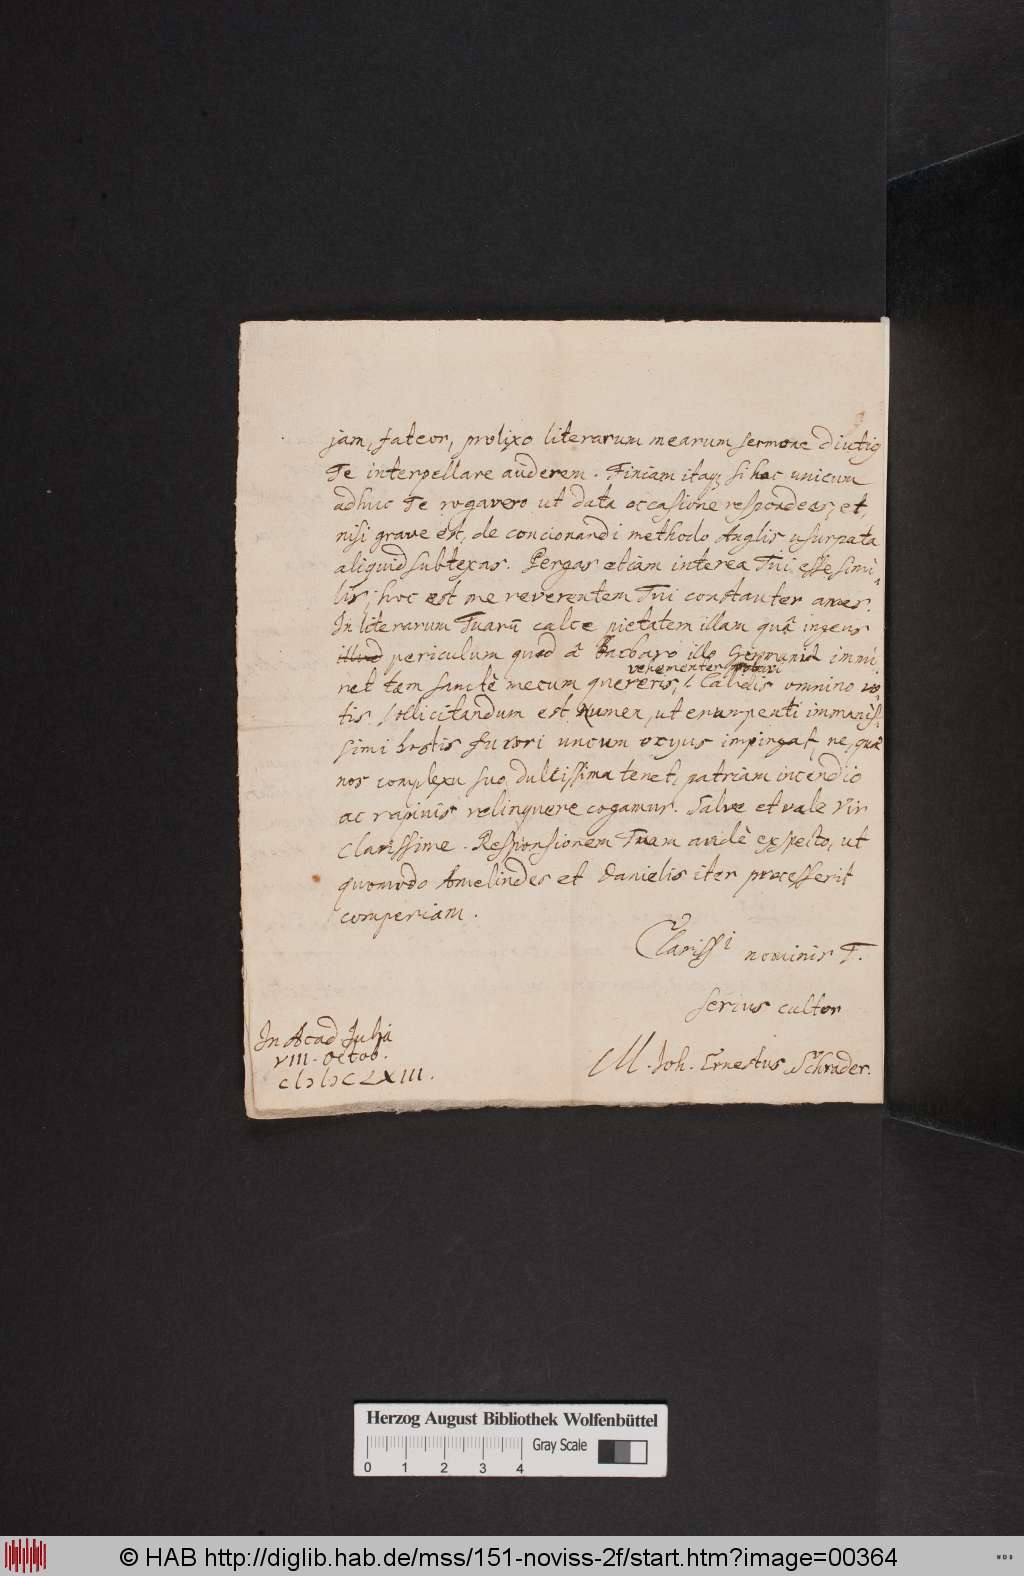 jam, fateor, prolixo literarum mearum sermone diutig
Te interpellare auderem. Finiam itaq; si hoc unicum
adhuc Te rogavero ut data occasione respondeas, et,
nisi grave est, de concionandi methodo Anglis usurpata
aliquid subtexas. Pergas etiam interea Tui esse simi-
lis, hoc est me reverentem Tui constanter ames.
In literarum Tuarū calce pietatem illam quâ ingens
illud periculum quod â Barbaro illo Germaniæ immi-
vehementer probavi
net tam sanctè mecum quereris, Calidis omnino vo-
tis sollicitandum est Numen, ut erumpenti immanis-
simi hostis furori uncum ocyus impingat, ne, quæ
nos complexu suo dulcissima tenet, patriam incendio
ac rapinis relinquere cogamur. Salve et vale Vir
Clarissime. Responsionem Tuam avidè expecto, ut
quomodo Amelindes et Danielis iter processerit
comperiam.
Clarissi nominis T.
serius cultor
M. Joh. Ernestus Schrader.
In Acad Juliâ
VIII. Octob.
CIↃIↃCLXIII.
Herzog August Bibliothek Wolfenbüttel
Gray Scale
0 1 2 3 4
© HAB http://diglib.hab.de/mss/151-noviss-2f/start.htm?image=00364